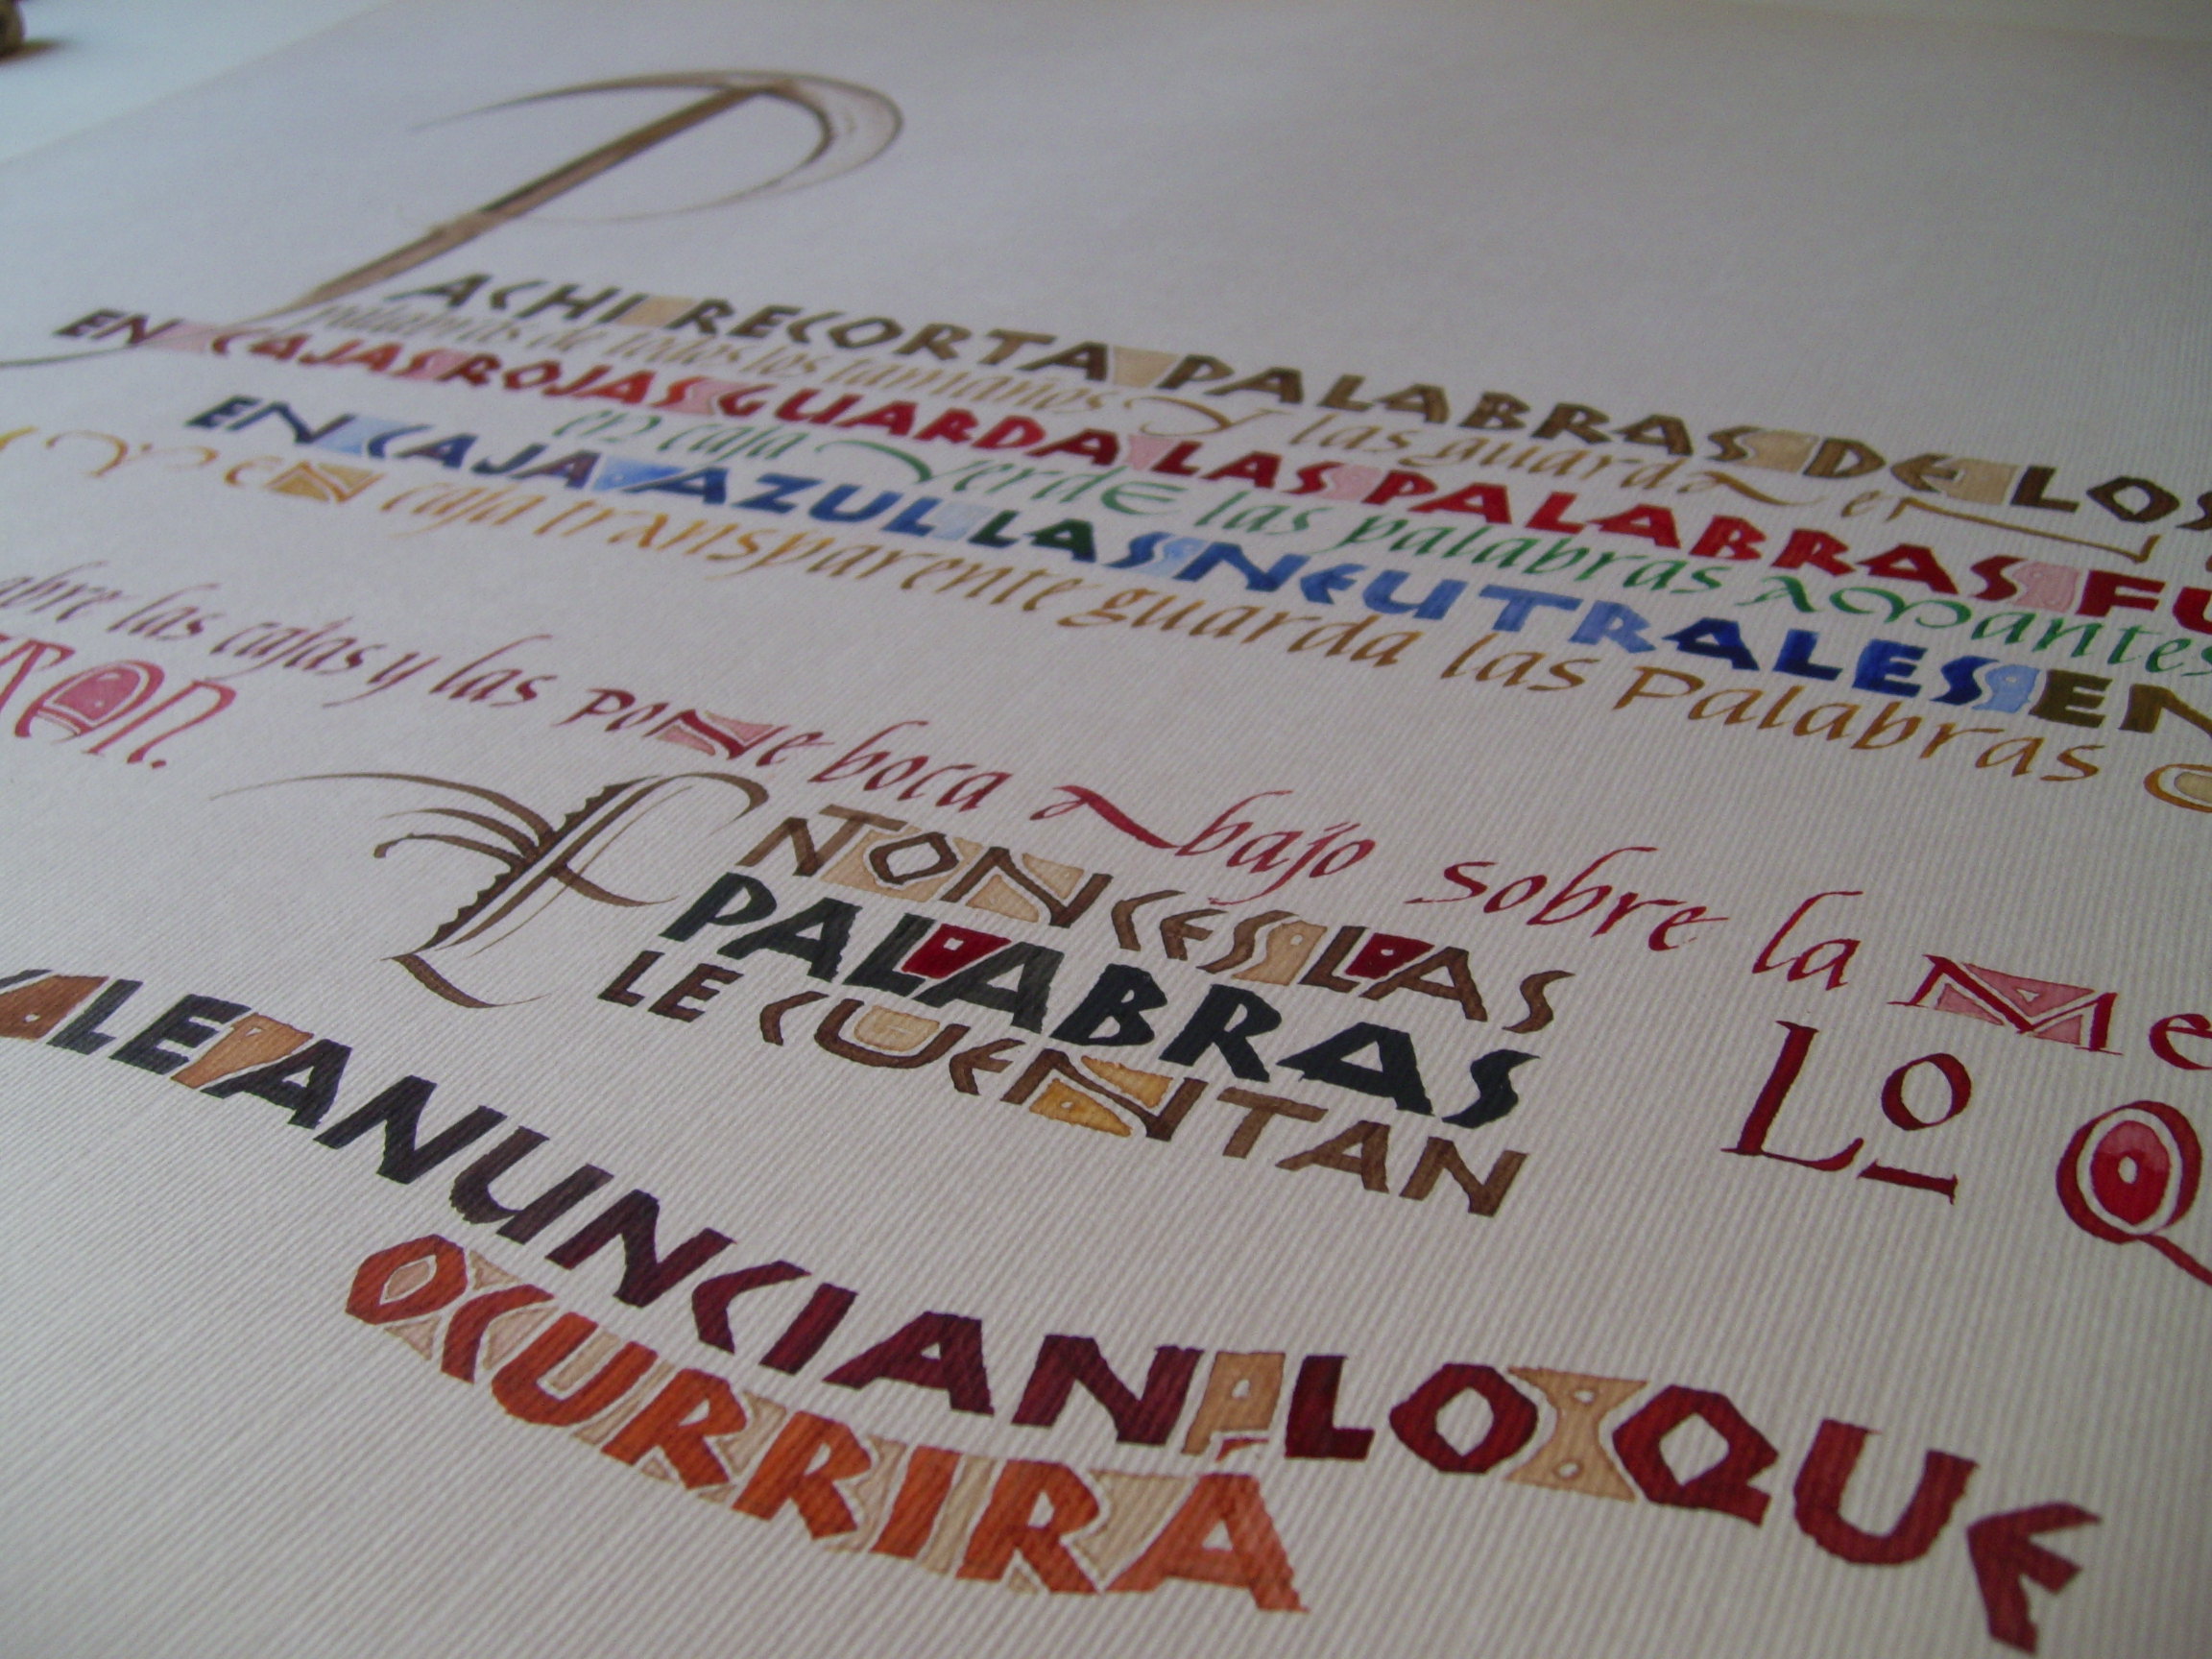 PACHI RECORTA PALABRAS DE LOS
palabras de todos los tamaños y las guarda en
EN CAJAS ROJAS GUARDA LAS PALABRAS FU
en caja verde las palabras amantes
EN CAJA AZUL LAS NEUTRALES EN
y en caja transparente guarda las palabras
abre las cajas y las pone boca abajo sobre la me
LO Q
ENTONCES LAS
PALABRAS
LE CUENTAN
LE ANUNCIAN LO QUE
OCURRIRÁ